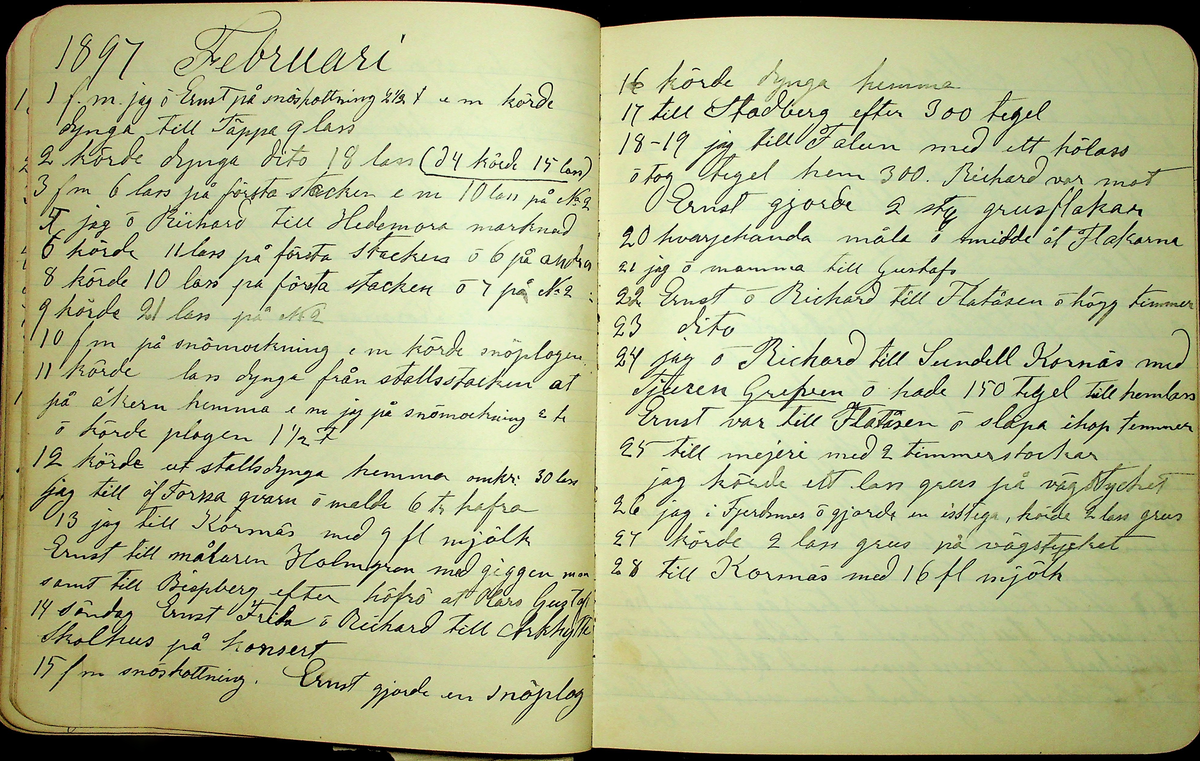 1897 Februari
1 f.m. jag ö Ernst på snöskottning 2½ t e m körde
dynga till Täppa 9 lass
2 körde dynga dito 18 lass (d 4 körde 15 lass)
3 fm 6 lass på första stacken e m 10 lass på No 2
jag ö Richard till Hedemora marknad
6 körde 11 lass på första stacken ö 6 på andra
8 körde 10 lass på första stacken ö 7 på No 2
9 körde 21 lass på No 2
10 f m på snömockning e m körde snöplogen
11 körde lass dynga från stallsstacken at
på åkern hemma e m jag på snömockning 2 t
ö körde plogen 1½ t
12 körde ut stallsdynga hemma omkr: 30 lass
jag till öf Torpa qvarn ö malde 6 t hafra
13 jag till Kornäs med 9 fl mjölk
Ernst till målaren Holmgren med giggen
samt till Bispberg efter höfrö at Lars Gust
14 söndag Ernst Frida ö Richard till Arkhytte
Skolhus på konsert
15 f m snöskottning. Ernst gjorde en snöplog
16 körde dynga hemma
17 till Stadberg efter 300 tegel
18-19 jag till Falun med ett hölass
ö tog tegel hem 300. Richard var mot
Ernst gjorde 2 sty grusflakar
20 hvarjehanda måla ö smidde åt Flakarna
21 jag ö mamma till Gustafs
22 Ernst ö Richard till Flatåsen ö högg timmer
23 dito
24 jag ö Richard till Sundell Kornäs med
Tjuren Grefven ö hade 150 tegel till hemlass
Ernst var till Flatåsen ö släpa ihop temmer
25 till mejeri med 2 timmerstockar
jag körde ett lass grus på vägstycket
26 jag i ö gjorde en isstega, körde 2 lass grus
27 körde 2 lass grus på vägstycket
28 till Kornäs med 16 fl mjölk